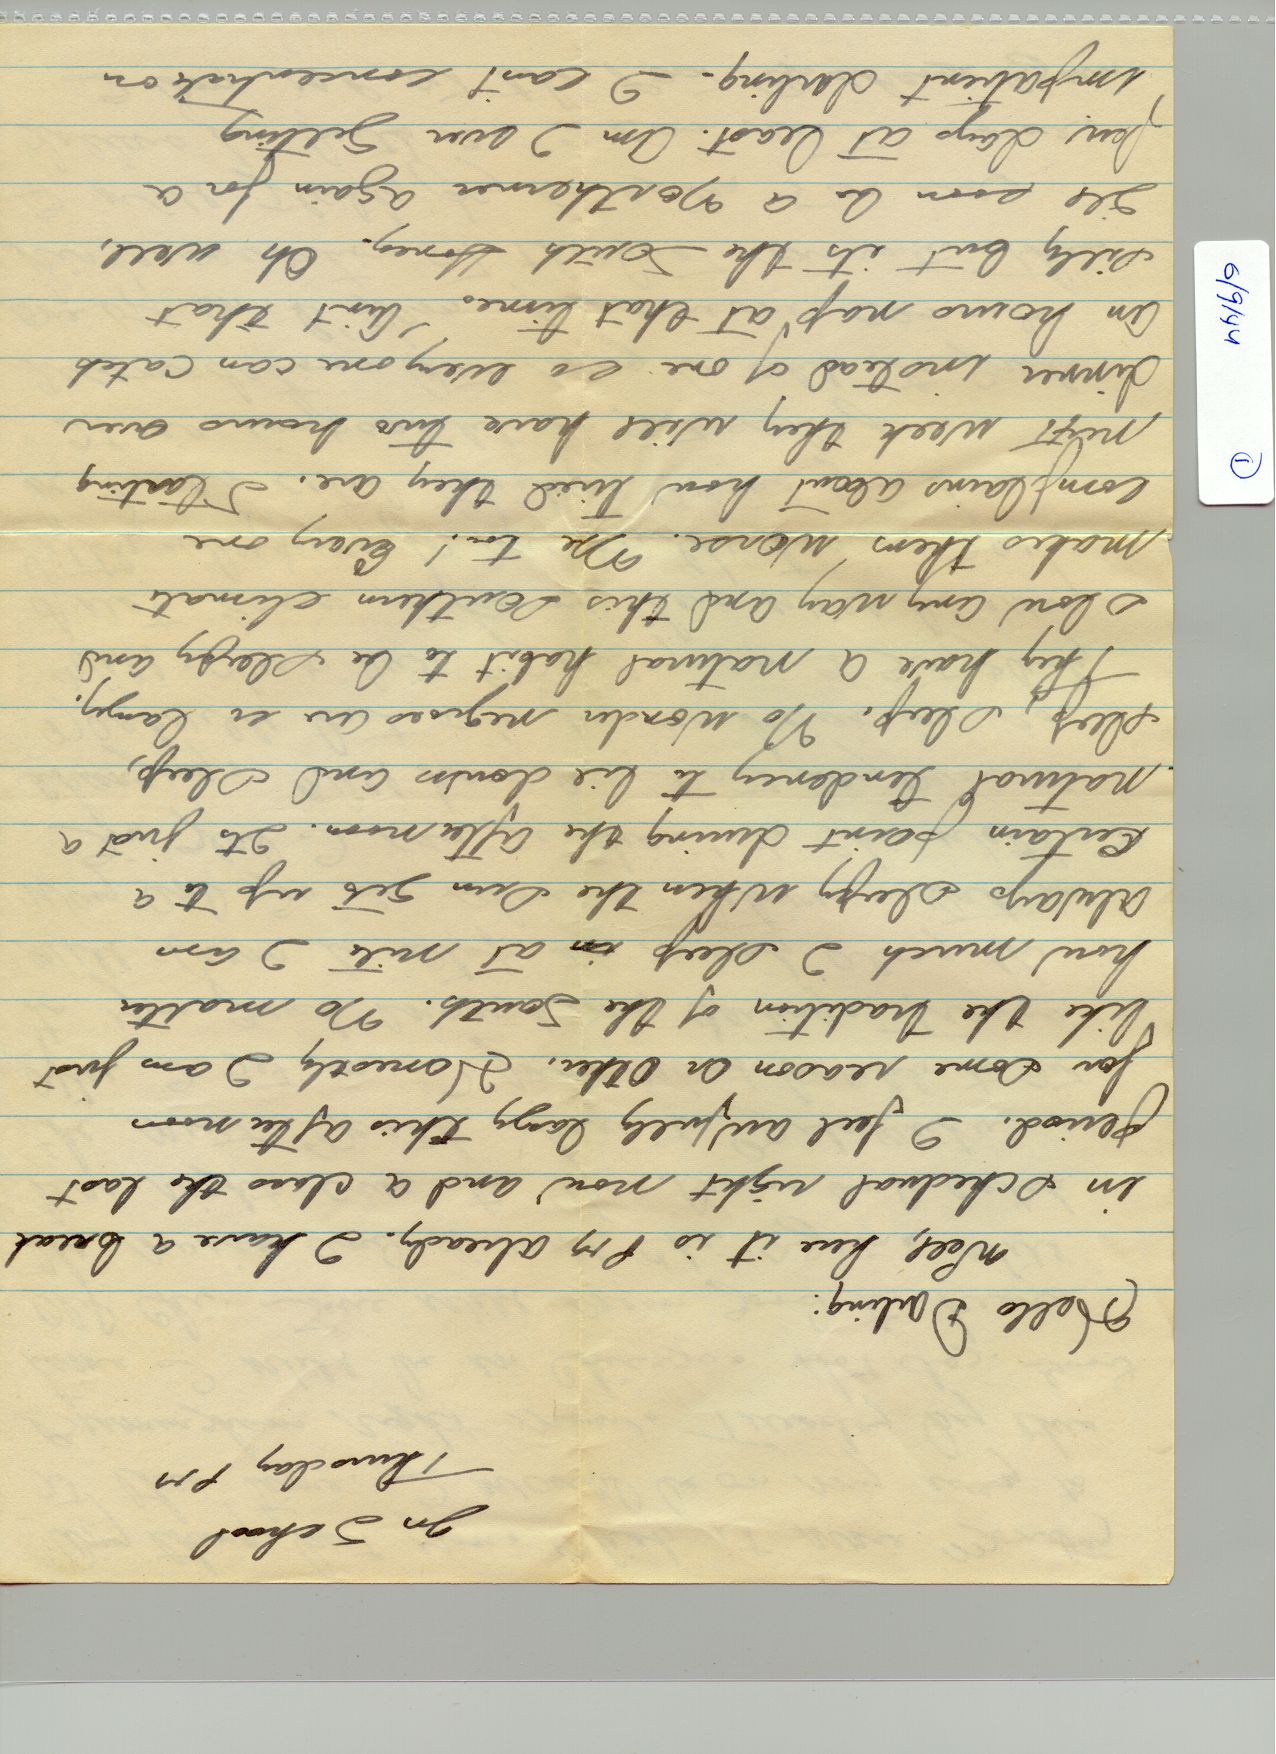 In School
Thursday PM
Hello Darling:
Well, here it is PM already. I have a break
in schedual right now and a class the last
period. I feel awfully lazy this afternoon
for some reason or other. Honestly I am just
like the tradition of the South. No matter
how much I sleep at nite I am
always sleepy when the sun gets up to a
certain point during the afternoon. Its just a
natural tendency to lie down and sleep,
sleep, sleep. No wonder negroes are so lazy.
They have a natural habit to be sleepy and
slow anyway and this southern climate
makes them worse. Me too! Every one
complains about how tired they are. Starting
next week they will have two hours over
dinner instead of one so everyone can catch
an hours nap at that time. Aint that
silly but its the South Honey. Oh well,
Ill soon be a Northerner again for a
few days at least. Am I ever getting
impatient darling. I cant concentrate on
6/9/44
1